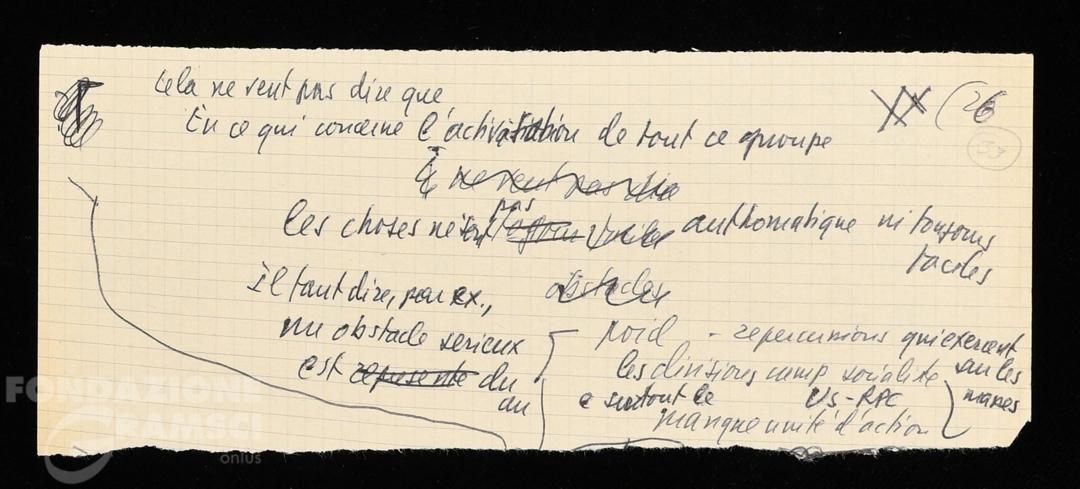 Cela ne veut pas dire que
En ce qui concerne l'activisation de tout ce groupe
ne veut pas dire
pas
les choses ne sont toujours faciles authomatique ni toujours
faciles
obstacles
Il faut dire, par ex.,
un obstacle serieux
est represente du
au
poid - repercussions qui exercent
les divisions camp socialite sur les
e surtout le US-RPC masses
manque unité d'action
XX (26
37
FONDAZIONE
GRAMSCI
onlus